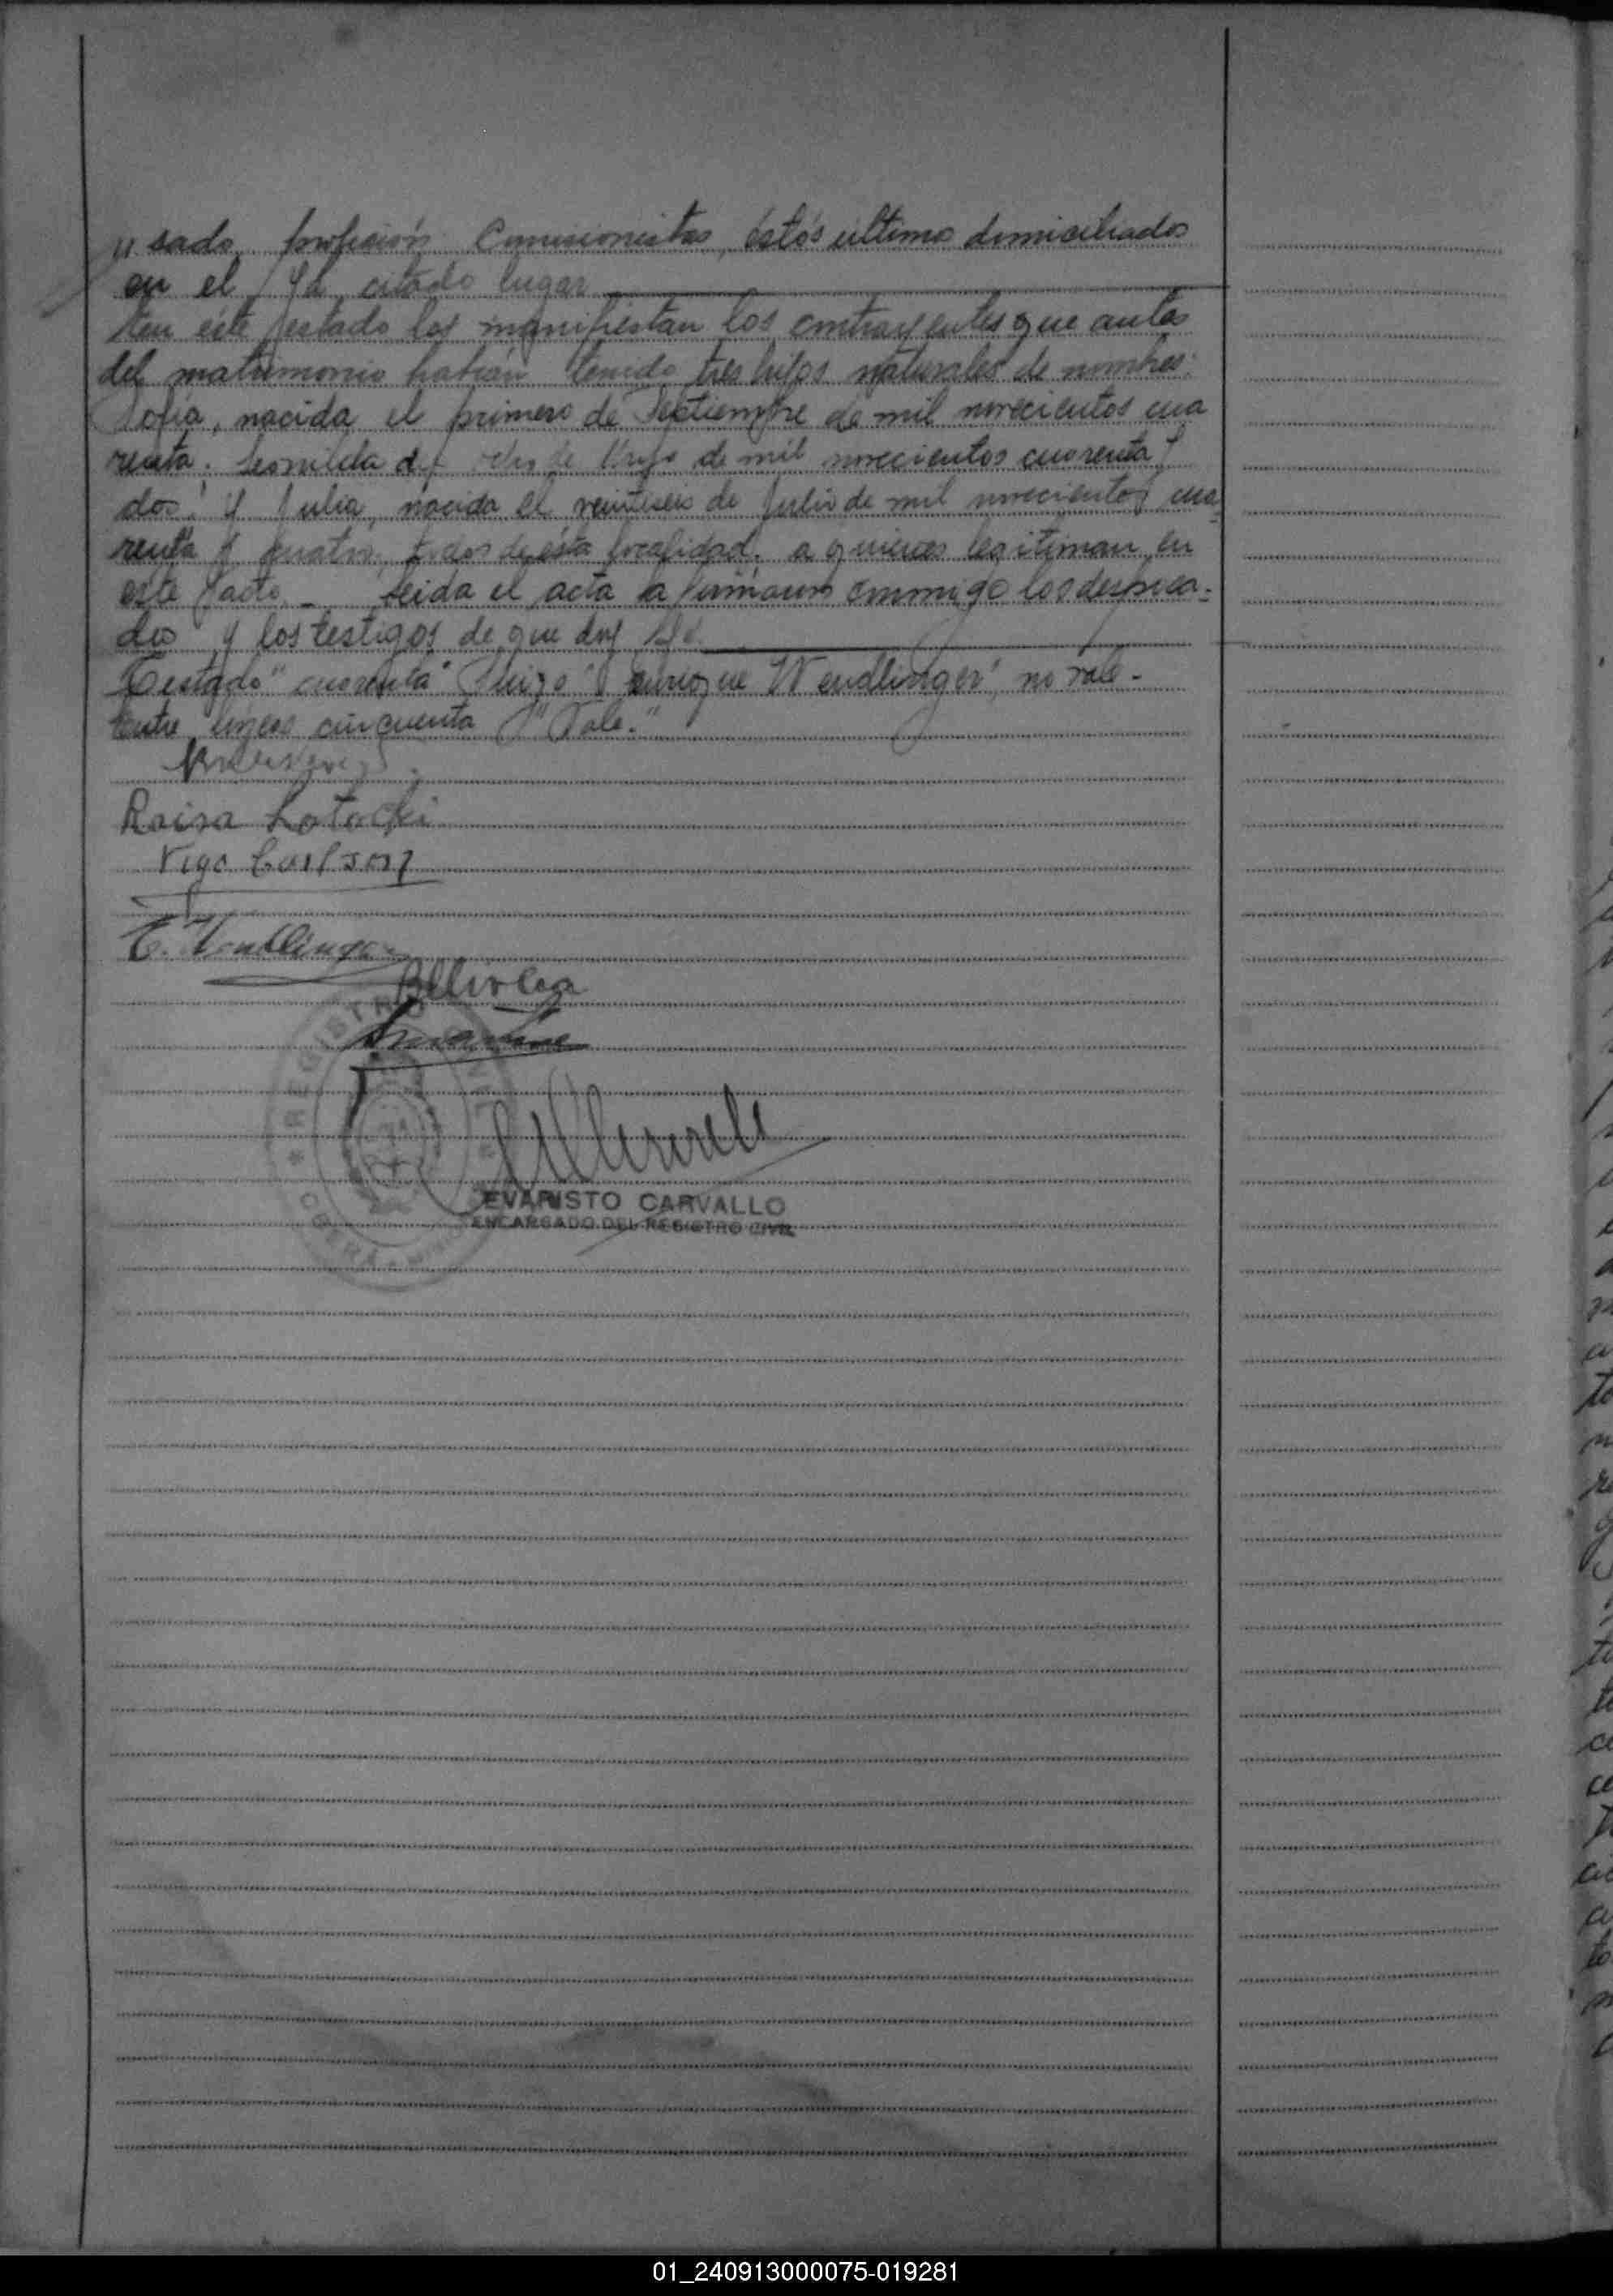 sado, profesión Comisionistas, éstos último domiciliados
en el ya citado lugar
En este estado los manifiestan los contrayentes que antes
del matrimonio habían tenido tres hijos naturales de nombres:
Sofia, nacida el primero de Septiembre de mil novecientos cua
renta; Leonilda de mil novecientos cuarenta y
dos; y Julia, nacida el veintiseis de Julio de mil novecientos cua
renta y cuatro, todos de ésta localidad, a quienes legitiman en
este acto. - Leida el acta la firmaron conmigo los desposa-
dos y los testigos de que doy fé.
Testado "cuarenta" "Enrique Wendlinger", no vale -
Entre lineas cincuenta "Vale."
Raisa Lotocki
Vigo Carlson
E. Wendlinger
REGISTRO
OBERÁ
EVARISTO CARVALLO
ENCARGADO DEL REGISTRO CIVIL
01_240913000075-019281